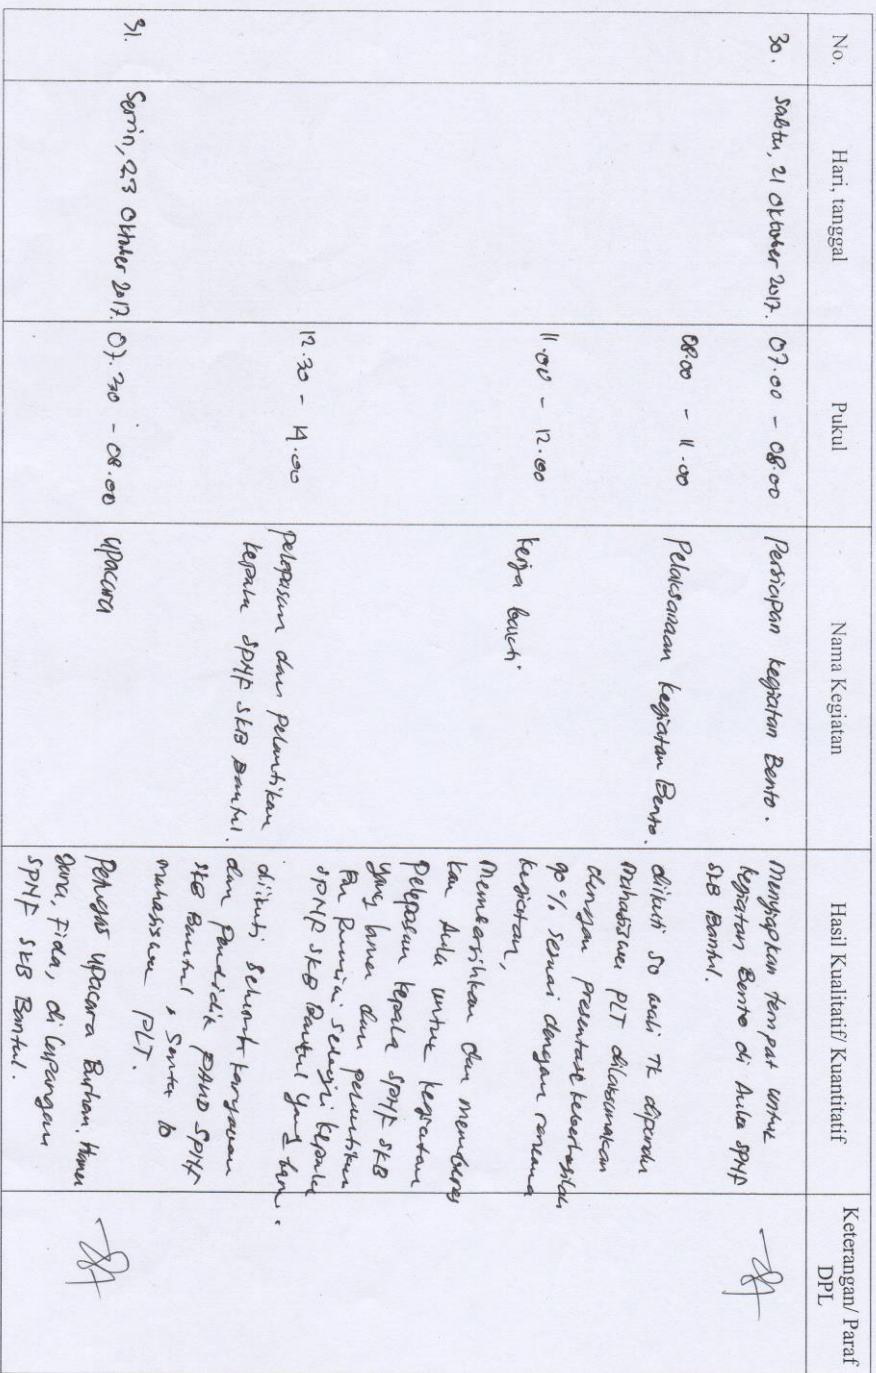 No.
Hari, tanggal
Pukul
Nama Kegiatan
Hasil Kualitatif/ Kuantitatif
Keterangan/ Paraf
DPL
30.
Sabtu, 21 Oktober 2017.
07.00 - 08.00
Persiapan kegiatan Bento.
Menyiapkan tempat untuk
kegiatan Bento di Aula SPNF
SKB Bantul.
08.00 - 11.00
Pelaksanaan kegiatan Bento.
diikuti 50 wali TK dipandu
mahasiswa PLT dilaksanakan
dengan presentase keberhasilan
90% sesuai dengan rencana
kegiatan,
11.00 - 12.00
kerja bakti
Membersihkan dan memberes
kan Aula untuk kegiatan
Pelepasan kepala SPNF SKB
yang lama dan pelantikan
SPNF SKB Bantul yang
12.30 - 14.00
Pelepasan dan Pelantikan
kepala SPNF SKB Bantul.
diikuti seluruh karyawan
dan Pendidik PAUD SPNF
SKB Bantul, serta 10
mahasiswa PLT.
31.
Senin, 23 Oktober 2017.
07.30 - 08.00
upacara
Petugas upacara Burhan,
Fida, di lapangan
SPNF SKB Bantul.